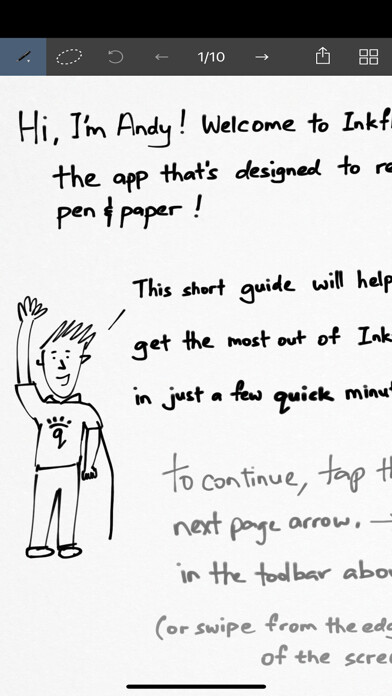 1/10
Hi, I'm Andy! Welcome to Inkf
the app that's designed to re
pen & paper!
This short guide will help
get the most out of Ink
in just a few quick minut
q
to continue, tap th
next page arrow. →
in the toolbar abov
(or swipe from the edg
of the scree